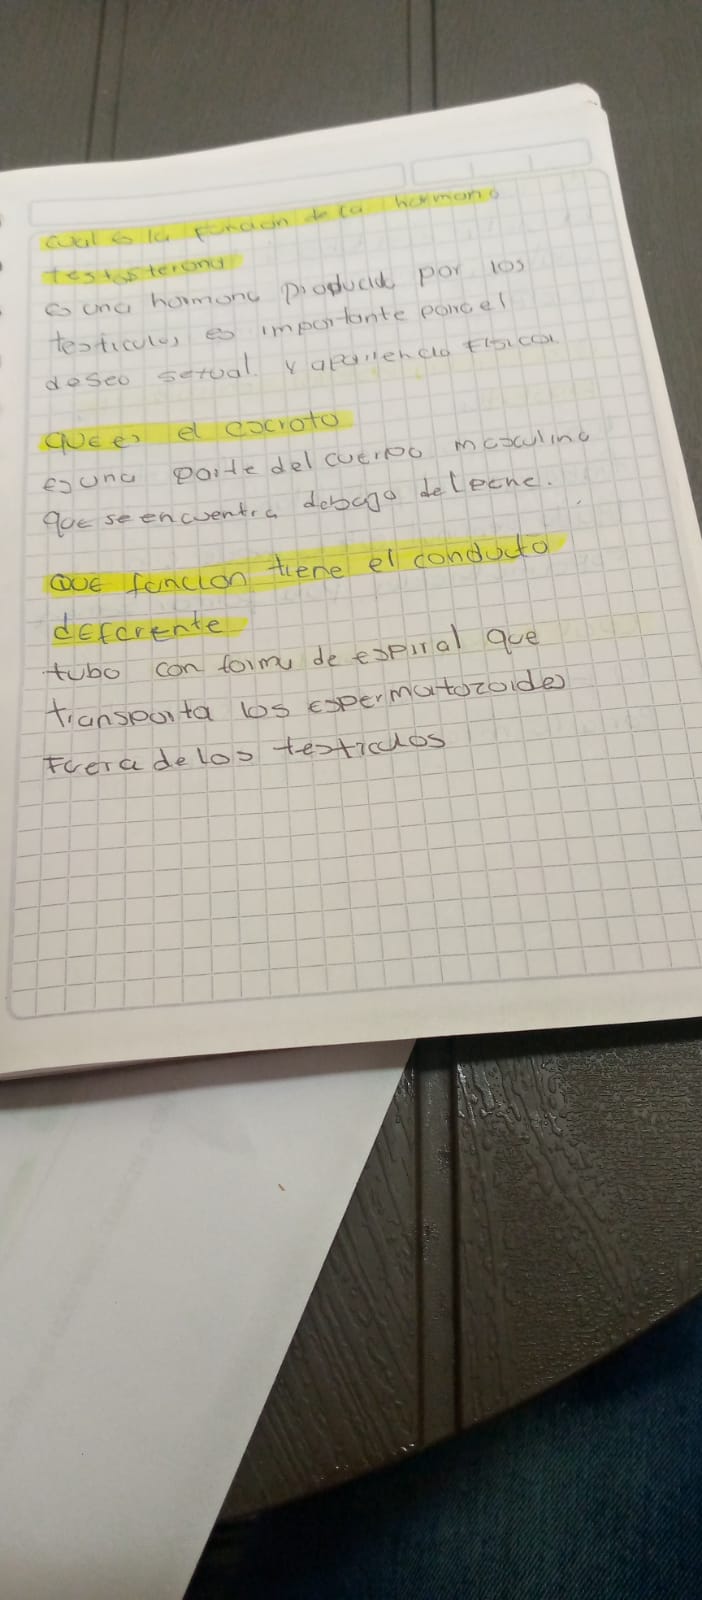 cual es la funcion de la hormona
testosterona
es una hormona producida por los
testiculos es importante para el
deseo sexual y apariencia fisica
que es el escroto
es una parte del cuerpo masculino
que se encuentra debajo del pene.
QUE funcion tiene el conducto
deferente
tubo con forma de espiral que
transporta los espermatozoides
Fuera de los testiculos